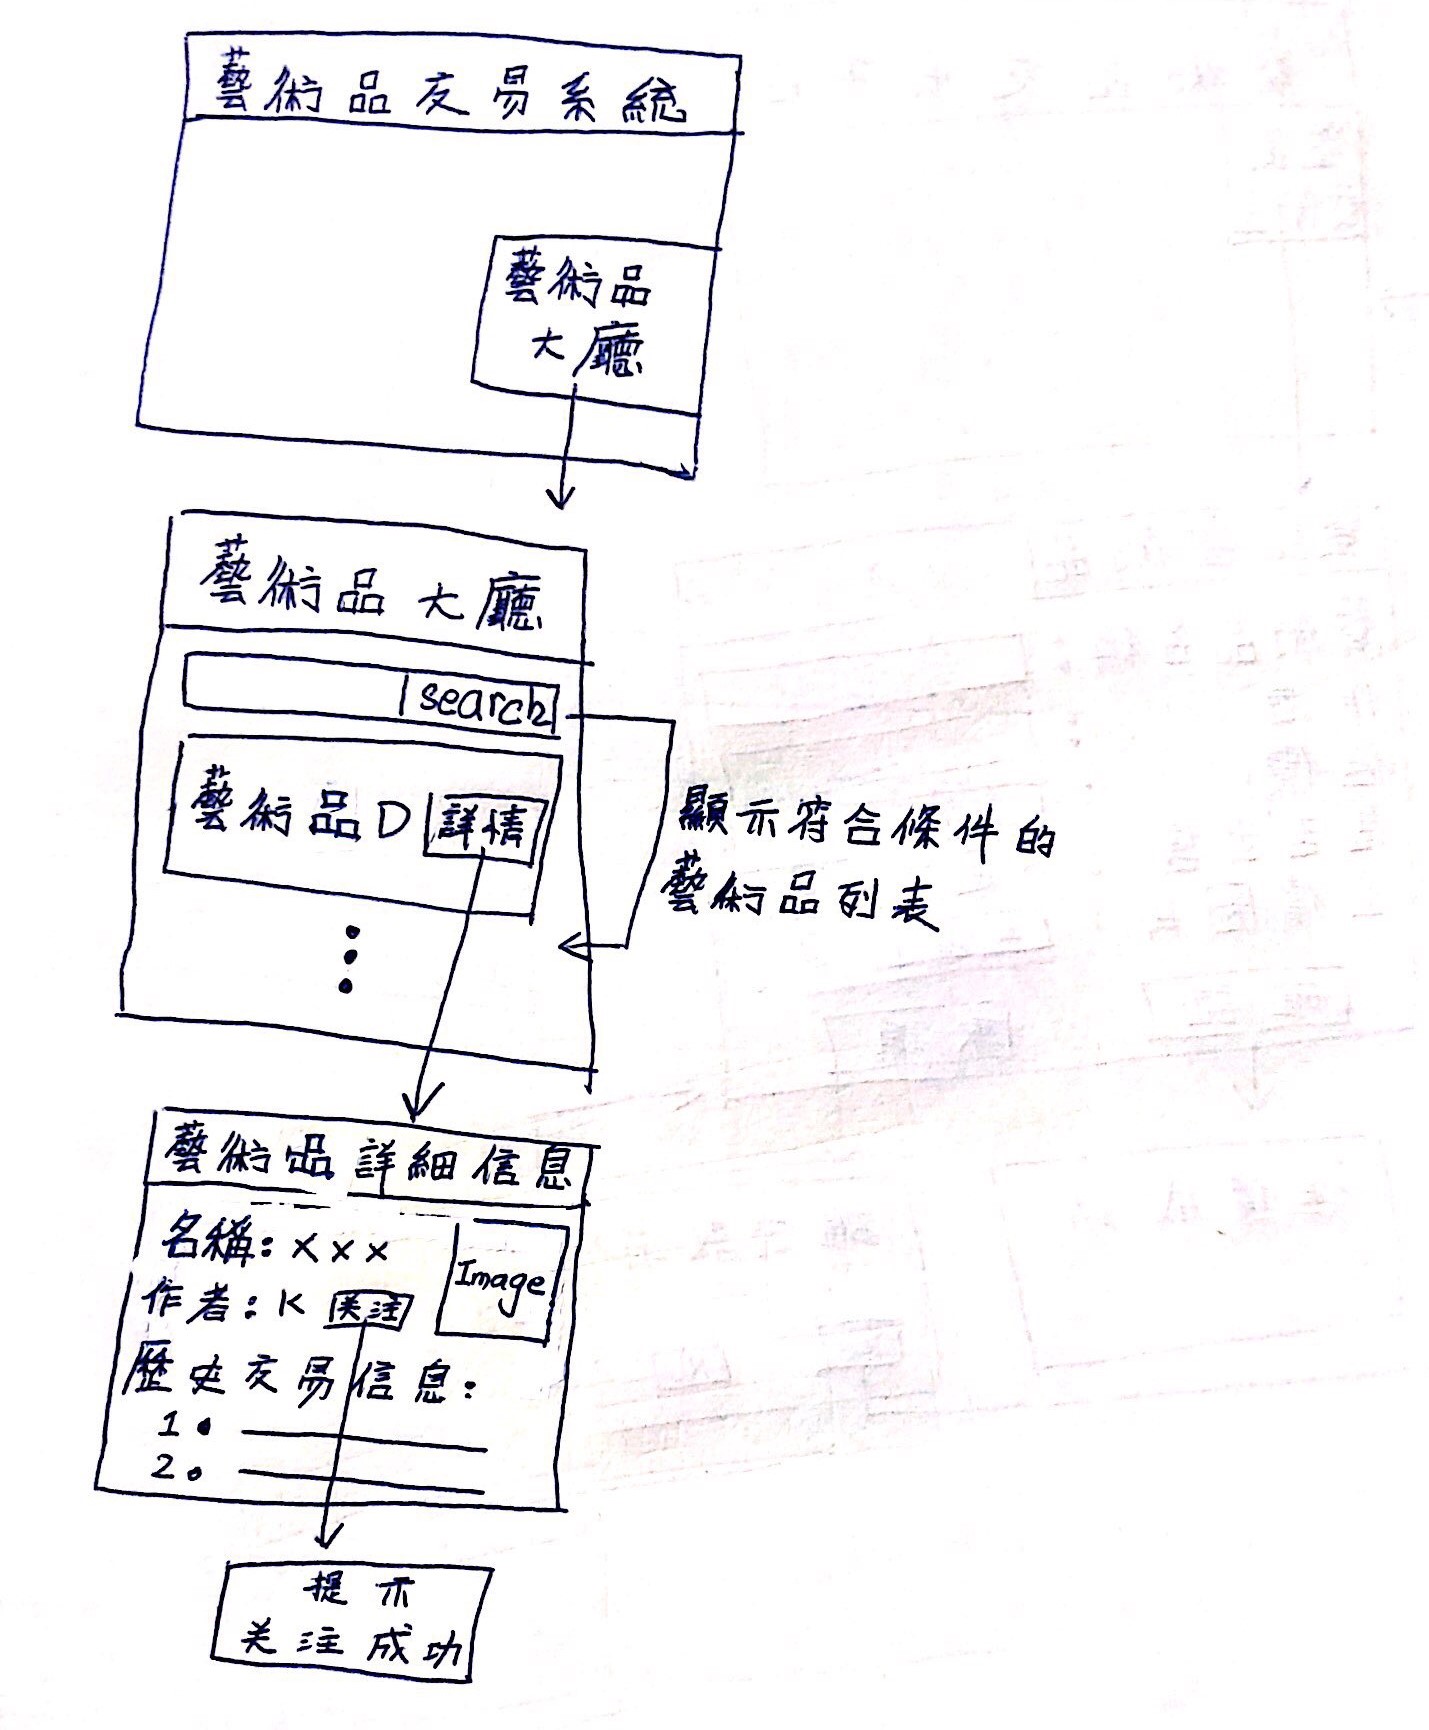 藝術品交易系統
藝術品
大廳
藝術品大廳
search
藝術品D 詳情
顯示符合條件的
藝術品列表
藝術品詳細信息
名稱: xxx
Image
作者: K 关注
歷史交易信息:
1.
2.
提示
关注成功